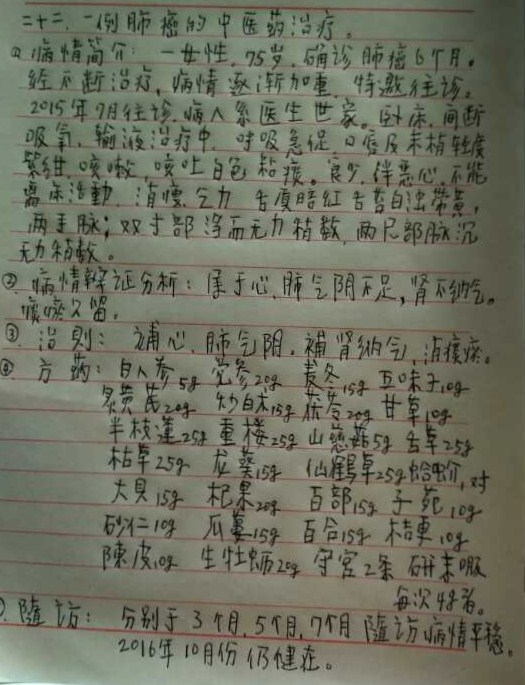 二十二、一例肺癌的中医药治疗。
①病情简介：一女性，75岁，确诊肺癌6个月。
经不断治疗，病情逐渐加重，特邀往诊。
2015年9月往诊，病人系医生世家。卧床，间断
吸氧，输液治疗中，呼吸急促，口唇及末梢轻度
紫绀，咳嗽，咳吐白色粘痰。食少，伴恶心，不能
离床活動，消瘦，乏力，舌质暗红，舌苔白浊带黄，
两手脉：双寸部浮而无力稍数，两尺部脉沉
无力稍数。
②病情辩证分析：属于心、肺气阴不足，肾不纳气。
痰瘀久留。
③治则：補心、肺气阴，補肾纳气，消痰瘀。
④方药：白人参5g 党参20g 麦冬15g 五味子10g
炙黄芪20g 炒白术15g 茯苓20g 甘草10g
半枝莲25g 重楼25g 山慈菇5g 舌草25g
枯草25g 龙葵15g 仙鹤草25g 蛤蚧1对
大贝15g 杞果20g 百部15g 子苑10g
砂仁10g 瓜蒌15g 百合15g 桔更10g
陳皮10g 生牡蛎20g 守宫2条 研末服
每次
随访：分别于3个月，5个月，7个月随访病情平稳。
2016年10月份仍健在。